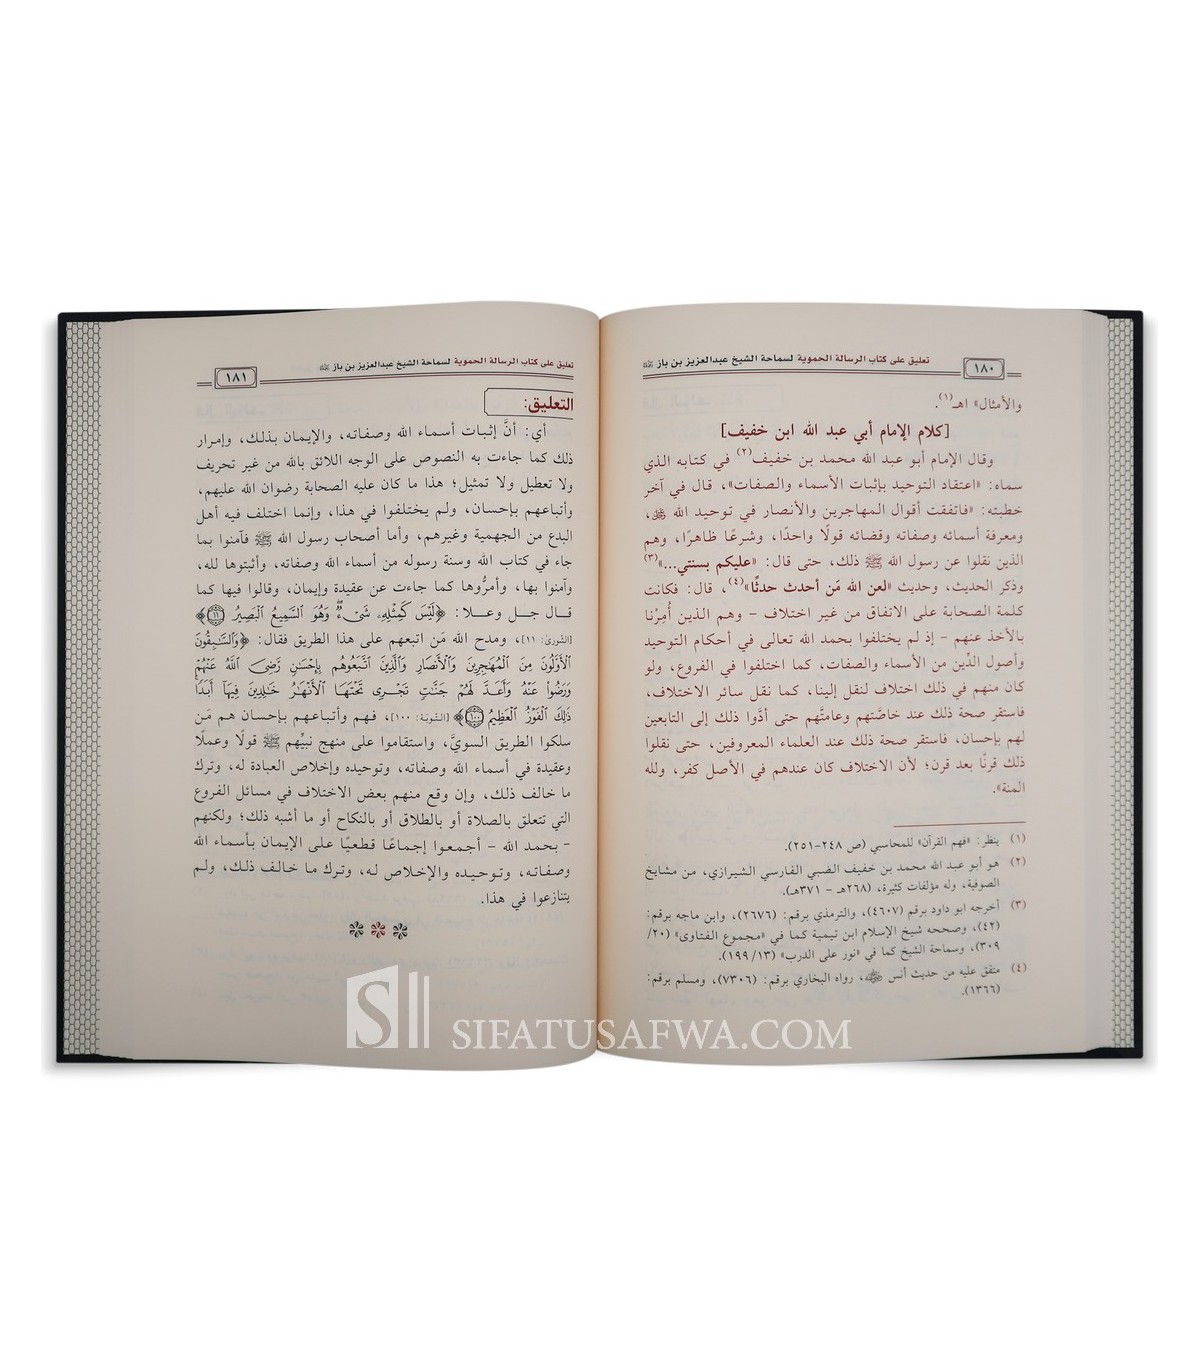 تعليق على كتاب الرسالة الحموية لسماحة الشيخ عبدالعزيز بن باز
١٨٠
والأمثال» اهـ(١).
[كلام الإمام أبي عبد الله ابن خفيف]
وقال الإمام أبو عبد الله محمد بن خفيف(٢) في كتابه الذي
سماه: «اعتقاد التوحيد بإثبات الأسماء والصفات»، قال في آخر
خطبته: «فاتفقت أقوال المهاجرين والأنصار في توحيد الله ﷻ،
ومعرفة أسمائه وصفاته وقضائه قولًا واحدًا، وشرعًا ظاهرًا، وهم
الذين نقلوا عن رسول الله ﷺ ذلك، حتى قال: «عليكم بسنتي...»(٣)
وذكر الحديث، وحديث «لعن الله مَن أحدث حدثًا»(٤)، قال: فكانت
كلمة الصحابة على الاتفاق من غير اختلاف - وهم الذين أُمِرْنا
بالأخذ عنهم - إذ لم يختلفوا بحمد الله تعالى في أحكام التوحيد
وأصول الدِّين من الأسماء والصفات، كما اختلفوا في الفروع، ولو
كان منهم في ذلك اختلاف لنقل إلينا، كما نقل سائر الاختلاف،
فاستقر صحة ذلك عند خاصَّتهم وعامتَّهم حتى أدَّوا ذلك إلى التابعين
لهم بإحسان، فاستقر صحة ذلك عند العلماء المعروفين، حتى نقلوا
ذلك قرنًا بعد قرن؛ لأن الاختلاف كان عندهم في الأصل كفر، ولله
المنة».
(١) ينظر: «فهم القرآن» للمحاسبي (ص ٢٤٨-٢٥١).
(٢) هو أبو عبد الله محمد بن خفيف الضبي الفارسي الشيرازي، من مشايخ
الصوفية، وله مؤلفات كثيرة، (٢٦٨هـ - ٣٧١هـ).
(٣) أخرجه ابو داود برقم (٤٦٠٧)، والترمذي برقم: (٢٦٧٦)، وابن ماجه برقم:
(٤٢)، وصححه شيخ الإسلام ابن تيمية كما في «مجموع الفتاوى» (٢٠/
٣٠٩)، وسماحة الشيخ كما في «نور على الدرب» (١٣/ ١٩٩).
(٤) متفق عليه من حديث أنس، رواه البخاري برقم: (٧٣٠٦)، ومسلم برقم:
(١٣٦٦).
تعليق على كتاب الرسالة الحموية لسماحة الشيخ عبدالعزيز بن باز
١٨١
التعليق:
أي: أنَّ إثبات أسماء الله وصفاته، والإيمان بذلك، وإمرار
ذلك كما جاءت به النصوص على الوجه اللائق بالله من غير تحريف
ولا تعطيل ولا تمثيل؛ هذا ما كان عليه الصحابة رضوان الله عليهم،
وأتباعهم بإحسان، ولم يختلفوا في هذا، وإنما اختلف فيه أهل
البدع من الجهمية وغيرهم، وأما أصحاب رسول الله ﷺ فآمنوا بما
جاء في كتاب الله وسنة رسوله من أسماء الله وصفاته، وأثبتوها لله،
وآمنوا بها، وأمرُّوها كما جاءت عن عقيدة وإيمان، وقالوا فيها كما
قال جل وعلا: ﴿لَيْسَ كَمِثْلِهِۦ شَىْءٌ وَهُوَ ٱلسَّمِيعُ ٱلْبَصِيرُ ١١﴾
[الشورى: ١١]، ومدح الله مَن اتبعهم على هذا الطريق فقال: ﴿وَٱلسَّٰبِقُونَ
ٱلْأَوَّلُونَ مِنَ ٱلْمُهَٰجِرِينَ وَٱلْأَنصَارِ وَٱلَّذِينَ ٱتَّبَعُوهُم بِإِحْسَٰنٍ رَّضِىَ ٱللَّهُ عَنْهُمْ
وَرَضُوا۟ عَنْهُ وَأَعَدَّ لَهُمْ جَنَّٰتٍ تَجْرِى تَحْتَهَا ٱلْأَنْهَٰرُ خَٰلِدِينَ فِيهَآ أَبَدًا
ذَٰلِكَ ٱلْفَوْزُ ٱلْعَظِيمُ ١٠٠﴾ [التوبة: ١٠٠]، فهم وأتباعهم بإحسان هم مَن
سلكوا الطريق السويَّ، واستقاموا على منهج نبيِّهم ﷺ قولًا وعملًا
وعقيدة في أسماء الله وصفاته، وتوحيده وإخلاص العبادة له، وترك
ما خالف ذلك، وإن وقع منهم بعض الاختلاف في مسائل الفروع
التي تتعلق بالصلاة أو بالطلاق أو بالنكاح أو ما أشبه ذلك؛ ولكنهم
- بحمد الله - أجمعوا إجماعًا قطعيًا على الإيمان بأسماء الله
وصفاته، وتوحيده والإخلاص له، وترك ما خالف ذلك، ولم
يتنازعوا في هذا.
SIFATUSAFWA.COM